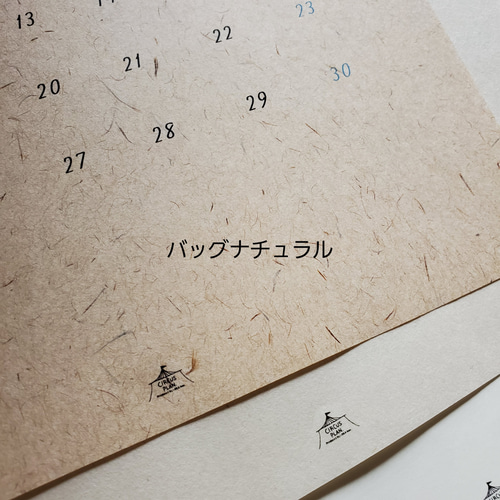 13
20 21 22 23
27 28 29 30
バッグナチュラル
CIRCUS
PLAN
CIRCUS
PLAN